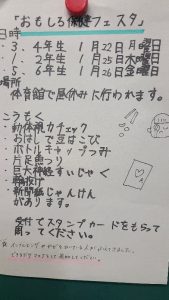 「おもしろ保健フェスタ」
日時
3．4年生 1月22日月曜日
1．2年生 1月25日木曜日
5．6年生 1月26日金曜日
場所
体育館で昼休みに行われます。
こうもく
・動体視力チェック
・おはしで豆はこび
・ボトルキャップつみ
・片足立つり
・巨大神経すいじゃく
・輪投げ
・新聞紙じゃんけん
があります。
受付でスタンプカードをもらって
周ってください。